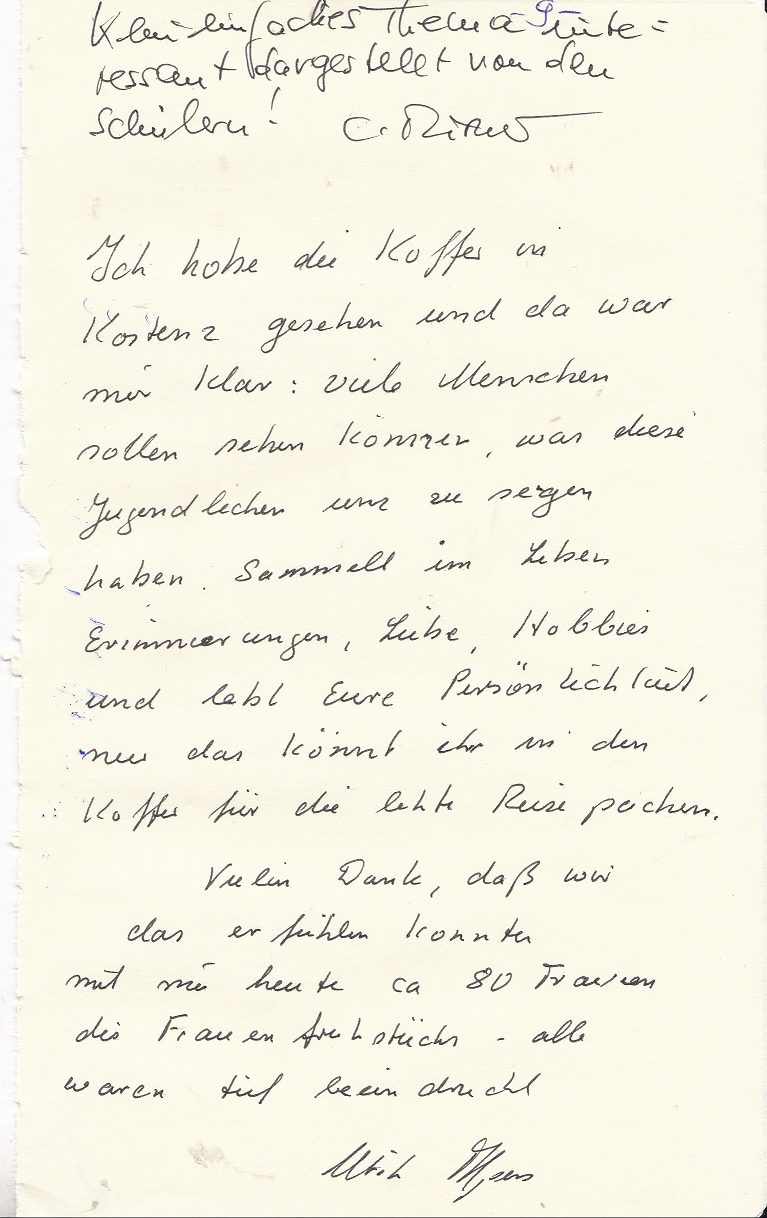 Kein einfaches Thema inte=
ressant dargestellt von den
Schülern! C.
Ich habe die Koffer in
Kostenz gesehen und da war
mir klar: viele Menschen
sollen sehen können, was diese
Jugendlichen uns zu sagen
haben. Sammelt im Leben
Erinnerungen, Liebe, Hobbies
und lebt Eure Persönlichkeit,
nur das könnt ihr in den
Koffer für die letzte Reise packen.
Vielen Dank, daß wir
das erfühlen konnten
mit mir heute ca 80 Frauen
des Frauenfrühstücks - alle
waren tief beeindruckt